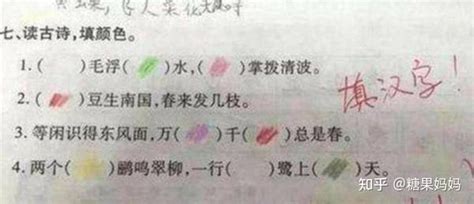 七、读古诗,填颜色。
1. ( )毛浮( )水,( )掌拨清波。
2. ( )豆生南国,春来发几枝。
3. 等闲识得东风面,万( )千( )总是春。
4. 两个( )鹂鸣翠柳,一行( )鹭上( )天。
填汉字!
知乎 @糖果妈妈